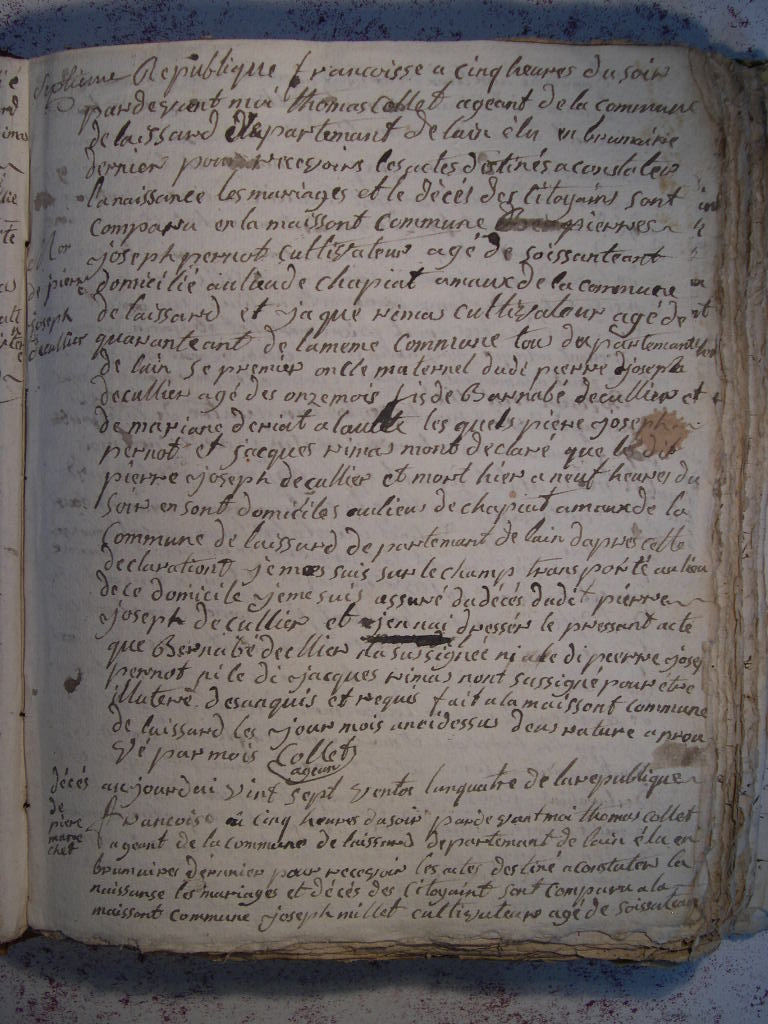 Republique francoisse a cinq heures du soir
pardevent moi thomas Collet ageant de la commune
de laissard departemant de lain élu en brumairie
dernier pour recevoirs les actes destinés a constater
la naissance les mariages et le décés des Citoyains sont
comparu en la maissont Commune pierres
joseph pernot cultivateur agé de soissanteant
domicilié au lieu de chapiat amaux de la commune
de laissard et jaque rimas cultivatour agé de
quaranteant de la meme Commune tou departemant
de lain le premier oncle maternel dudi pierre djoseph
decullier agé des onze mois fis de Barnabé decullier et
de mariane les quels piere joseph
pernot et jacques rimas mont declaré que le dit
pierre joseph decullier et mort hier a neuf heures du
soir en sont domiciles aulieus de chapiat amaux de la
Commune de laissard departemant de lain dapres cette
declarationt je me suis sur le champ transporté au lieu
de ce domicile jeme suis assuré du déces dudit pierre
joseph decullier et jennai dresser le pressant acte
que Bernabé decllier na sussignée ni le di pierre josep
pernot ni le di jacques rimas nont sussigné pour étre
illateré desanquis et requis fait a la maissont Commune
de laissard les jour mois ancidessus deus nature aprou
vé par mois Collet
ageant
Mor
de pierre
joseph
decullier
décés
de
piere
mare
chet
aujourdui vint sept ventos lanquatre de la republique
francoise a cinq heures du soir pardevant moi thomas Collet
ageant de la commune de laissard departemant de lain élu en
brumaires dérnier pour recevoir les actes destiné a constater la
naissance les mariages et décés des Citoyaint sont comparu a la
maissont commune joseph millet cultivateurs agé de soissantean